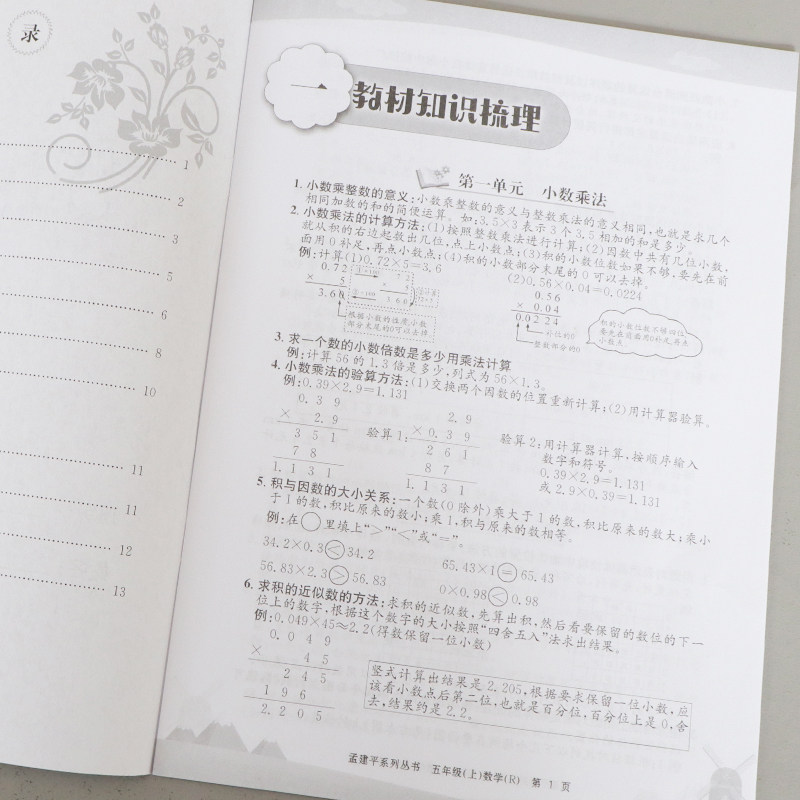 录
1
2
3
5
6
8
10
11
11
12
13
一 教材知识梳理
第一单元 小数乘法
1. 小数乘整数的意义:小数乘整数的意义与整数乘法的意义相同,也就是求几个
相同加数的和的简便运算。如:3.5×3表示3个3.5相加的和是多少。
2. 小数乘法的计算方法:(1)按照整数乘法进行计算;(2)因数中共有几位小数,
就从积的右边起数出几位,点上小数点;(3)积的小数位数如果不够,要先在前
面用0补足,再点小数点;(4)积的小数部分末尾的0可以去掉。
例:计算(1)0.72×5=3.6
(2)0.56×0.04=0.0224
0.72
× 5
3.60
根据小数的性质,小数
部分末尾的0可以去掉
0.56
× 0.04
0.0224
补位的0
整数部分的0
积的小数位数不够四位,
要先在前面用0补足,再点
小数点。
3. 求一个数的小数倍数是多少用乘法计算
例:计算56的1.3倍是多少,列式为56×1.3。
4. 小数乘法的验算方法:(1)交换两个因数的位置重新计算;(2)用计算器验算。
例:0.39×2.9=1.131
0.39
× 2.9
351
78
1.131
验算1:
2.9
×0.39
261
87
1.131
验算2:用计算器计算,按顺序输入
数字和符号。
0.39×2.9=1.131
或2.9×0.39=1.131
5. 积与因数的大小关系:一个数(0除外)乘大于1的数,积比原来的数大;乘小
于1的数,积比原来的数小;乘1,积与原来的数相等。
例:在○里填上“>”“<”或“=”。
34.2×0.3<34.2
65.43×1=65.43
56.83×2.3>56.83
0×0.98<0.98
6. 求积的近似数的方法:求积的近似数,先算出积,然后看要保留的数位的下一
位上的数字,根据这个数字的大小按照“四舍五入”法求出结果。
例:0.049×45≈2.2(得数保留一位小数)
0.049
× 45
245
196
2.205
竖式计算出结果是2.205,根据要求保留一位小数,应
该看小数点后第二位,也就是百分位,百分位上是0,舍
去,结果约是2.2。
孟建平系列丛书 五年级(上)数学(R) 第 1 页